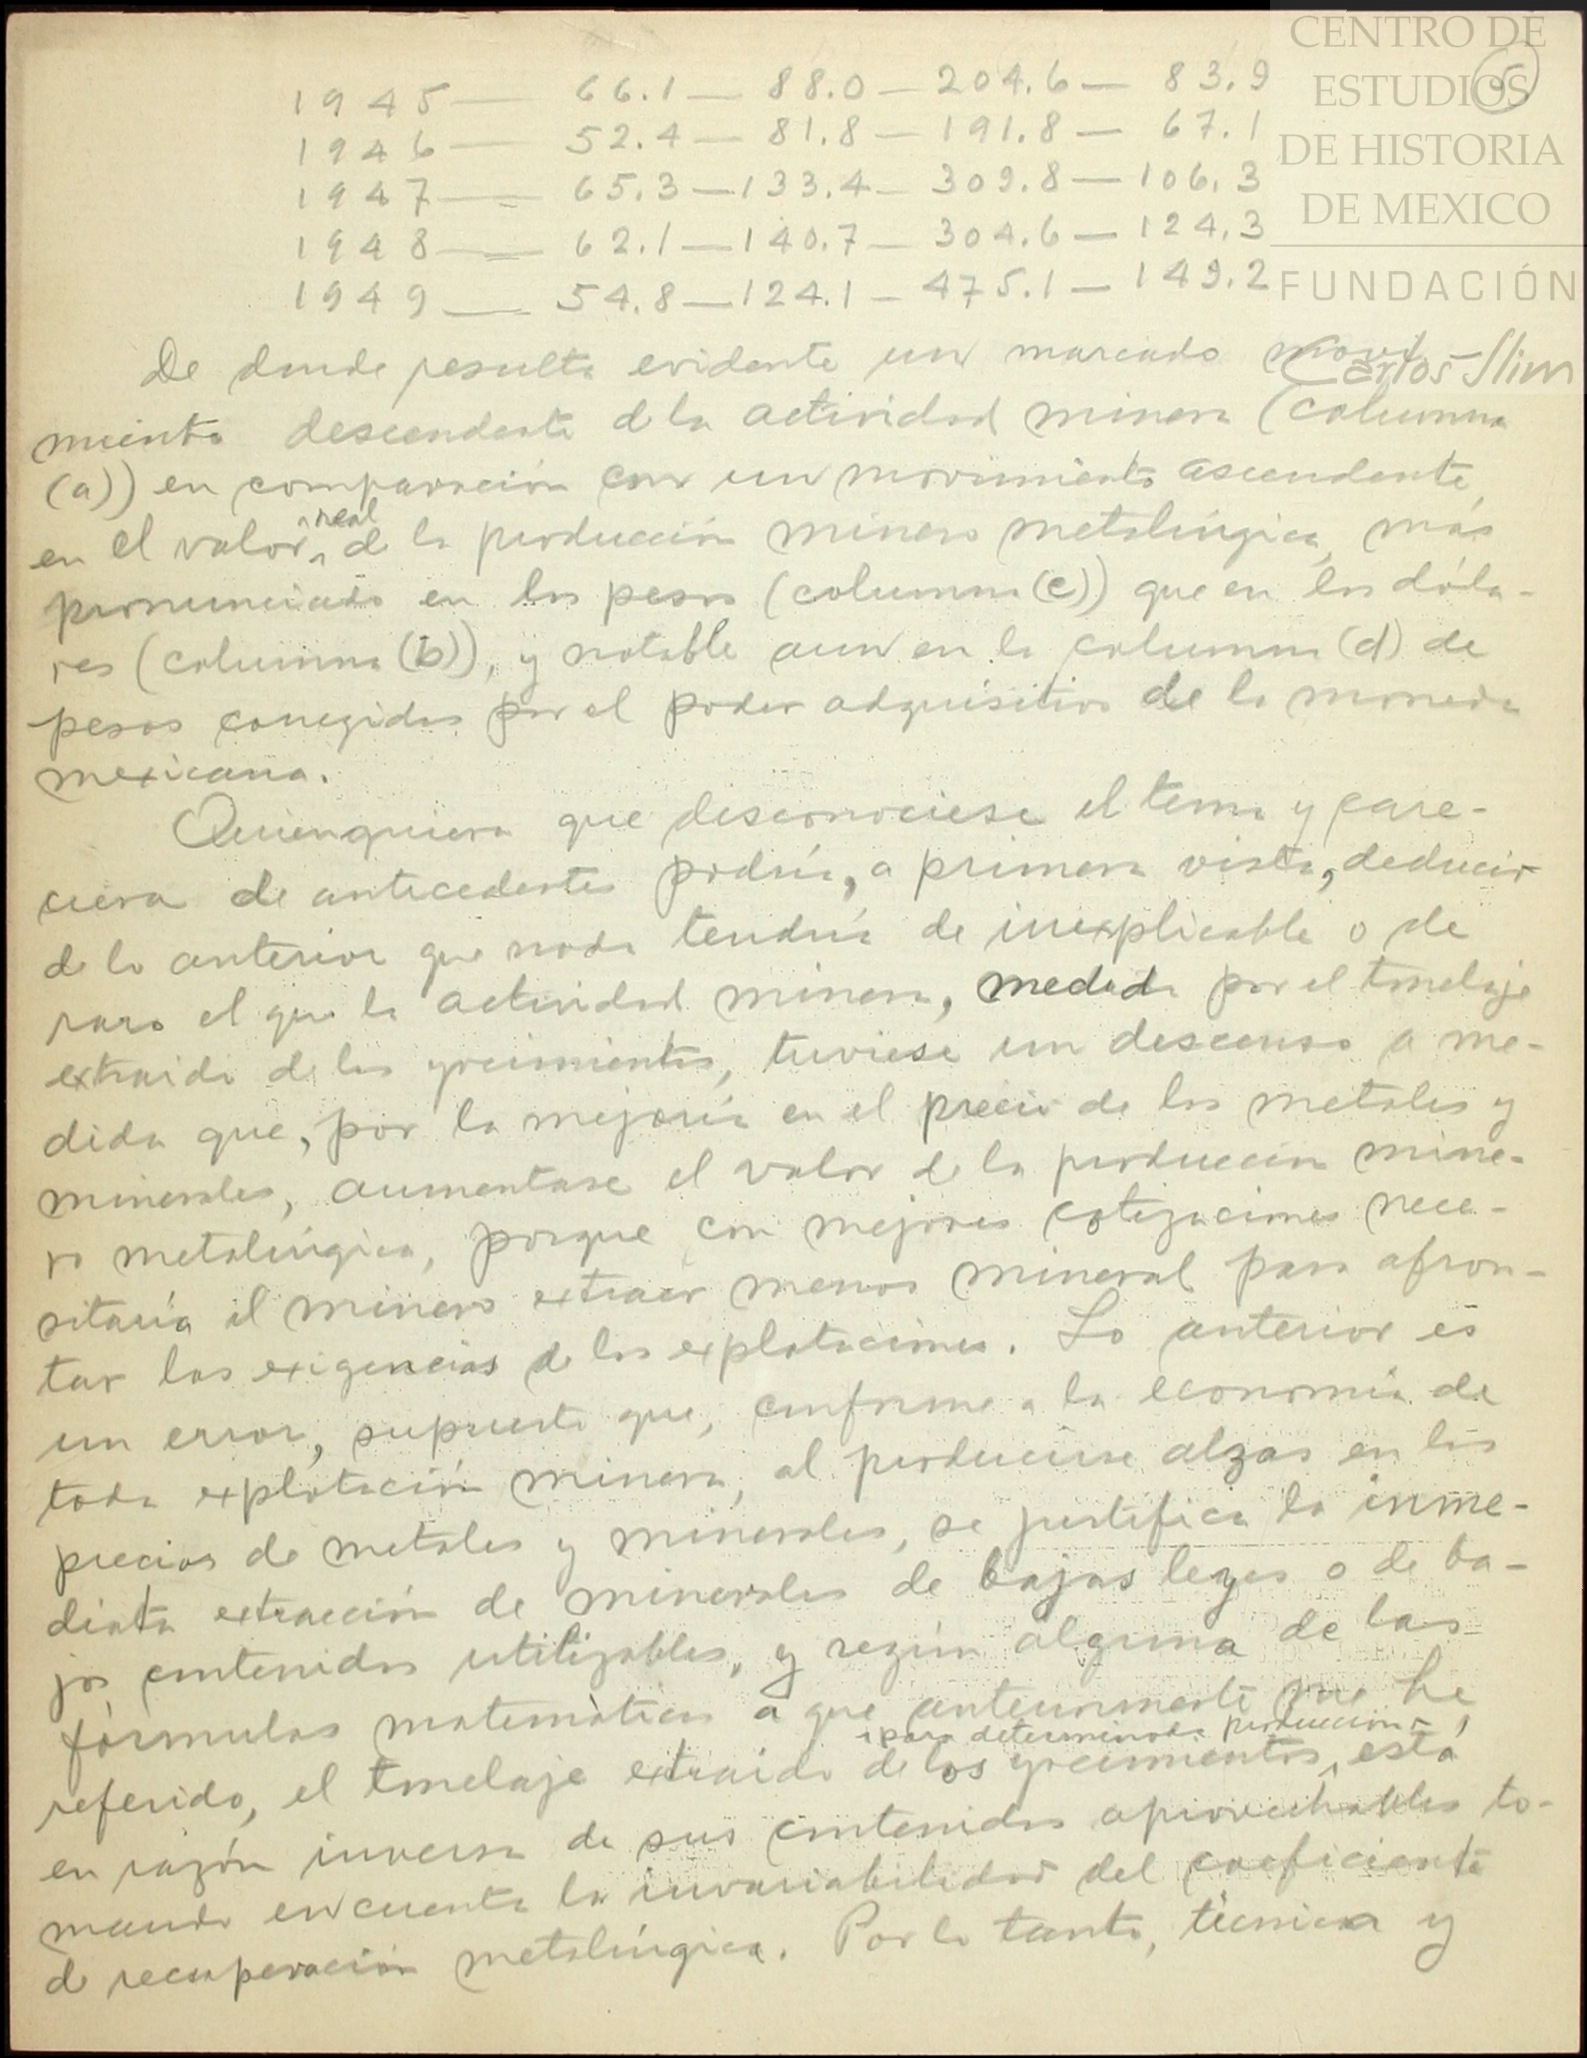 CENTRO DE
ESTUDIOS
DE HISTORIA
DE MEXICO
FUNDACIÓN
Carlos Slim
5
1945 — 66.1 — 88.0 — 204.6 — 83.9
1946 — 52.4 — 81.8 — 191.8 — 67.1
1947 — 65.3 — 133.4 — 309.8 — 106.3
1948 — 62.1 — 140.7 — 304.6 — 124.3
1949 — 54.8 — 124.1 — 475.1 — 149.2
De donde resulta evidente un marcado movi-
miento descendente de la actividad minera (columna
(a)) en comparación con un movimiento ascendente,
en el valor real de la producción minero metalúrgica, más
pronunciado en los pesos (columna (c)) que en los dóla-
res (columna (b)), y notable aun en la columna (d) de
pesos corregidos por el poder adquisitivo de la moneda
mexicana.
Quienquiera que desconociese el tema y care-
ciera de antecedentes podría, a primera vista, deducir
de lo anterior que nada tendría de inexplicable o de
raro el que la actividad minera, medida por el tonelaje
extraido de los yacimientos, tuviese un descenso a me-
dida que, por la mejoría en el precio de los metales y
minerales, aumentase el valor de la producción mine-
ro metalúrgica, porque con mejores cotizaciones nece-
sitaría el minero extraer menos mineral para afron-
tar las exigencias de las explotaciones. Lo anterior es
un error, supuesto que, conforme a la economía de
toda explotación minera, al producirse alzas en los
precios de metales y minerales, se justifica la inme-
diata extracción de minerales de bajas leyes o de ba-
jos contenidos utilizables, y según alguna de las
fórmulas matemáticas a que anteriormente me he
referido, el tonelaje extraido de los yacimientos para determinada producción, está
en razón inversa de sus contenidos aprovechables to-
mando en cuenta la invariabilidad del coeficiente
de recuperación metalúrgica. Por lo tanto, técnica y